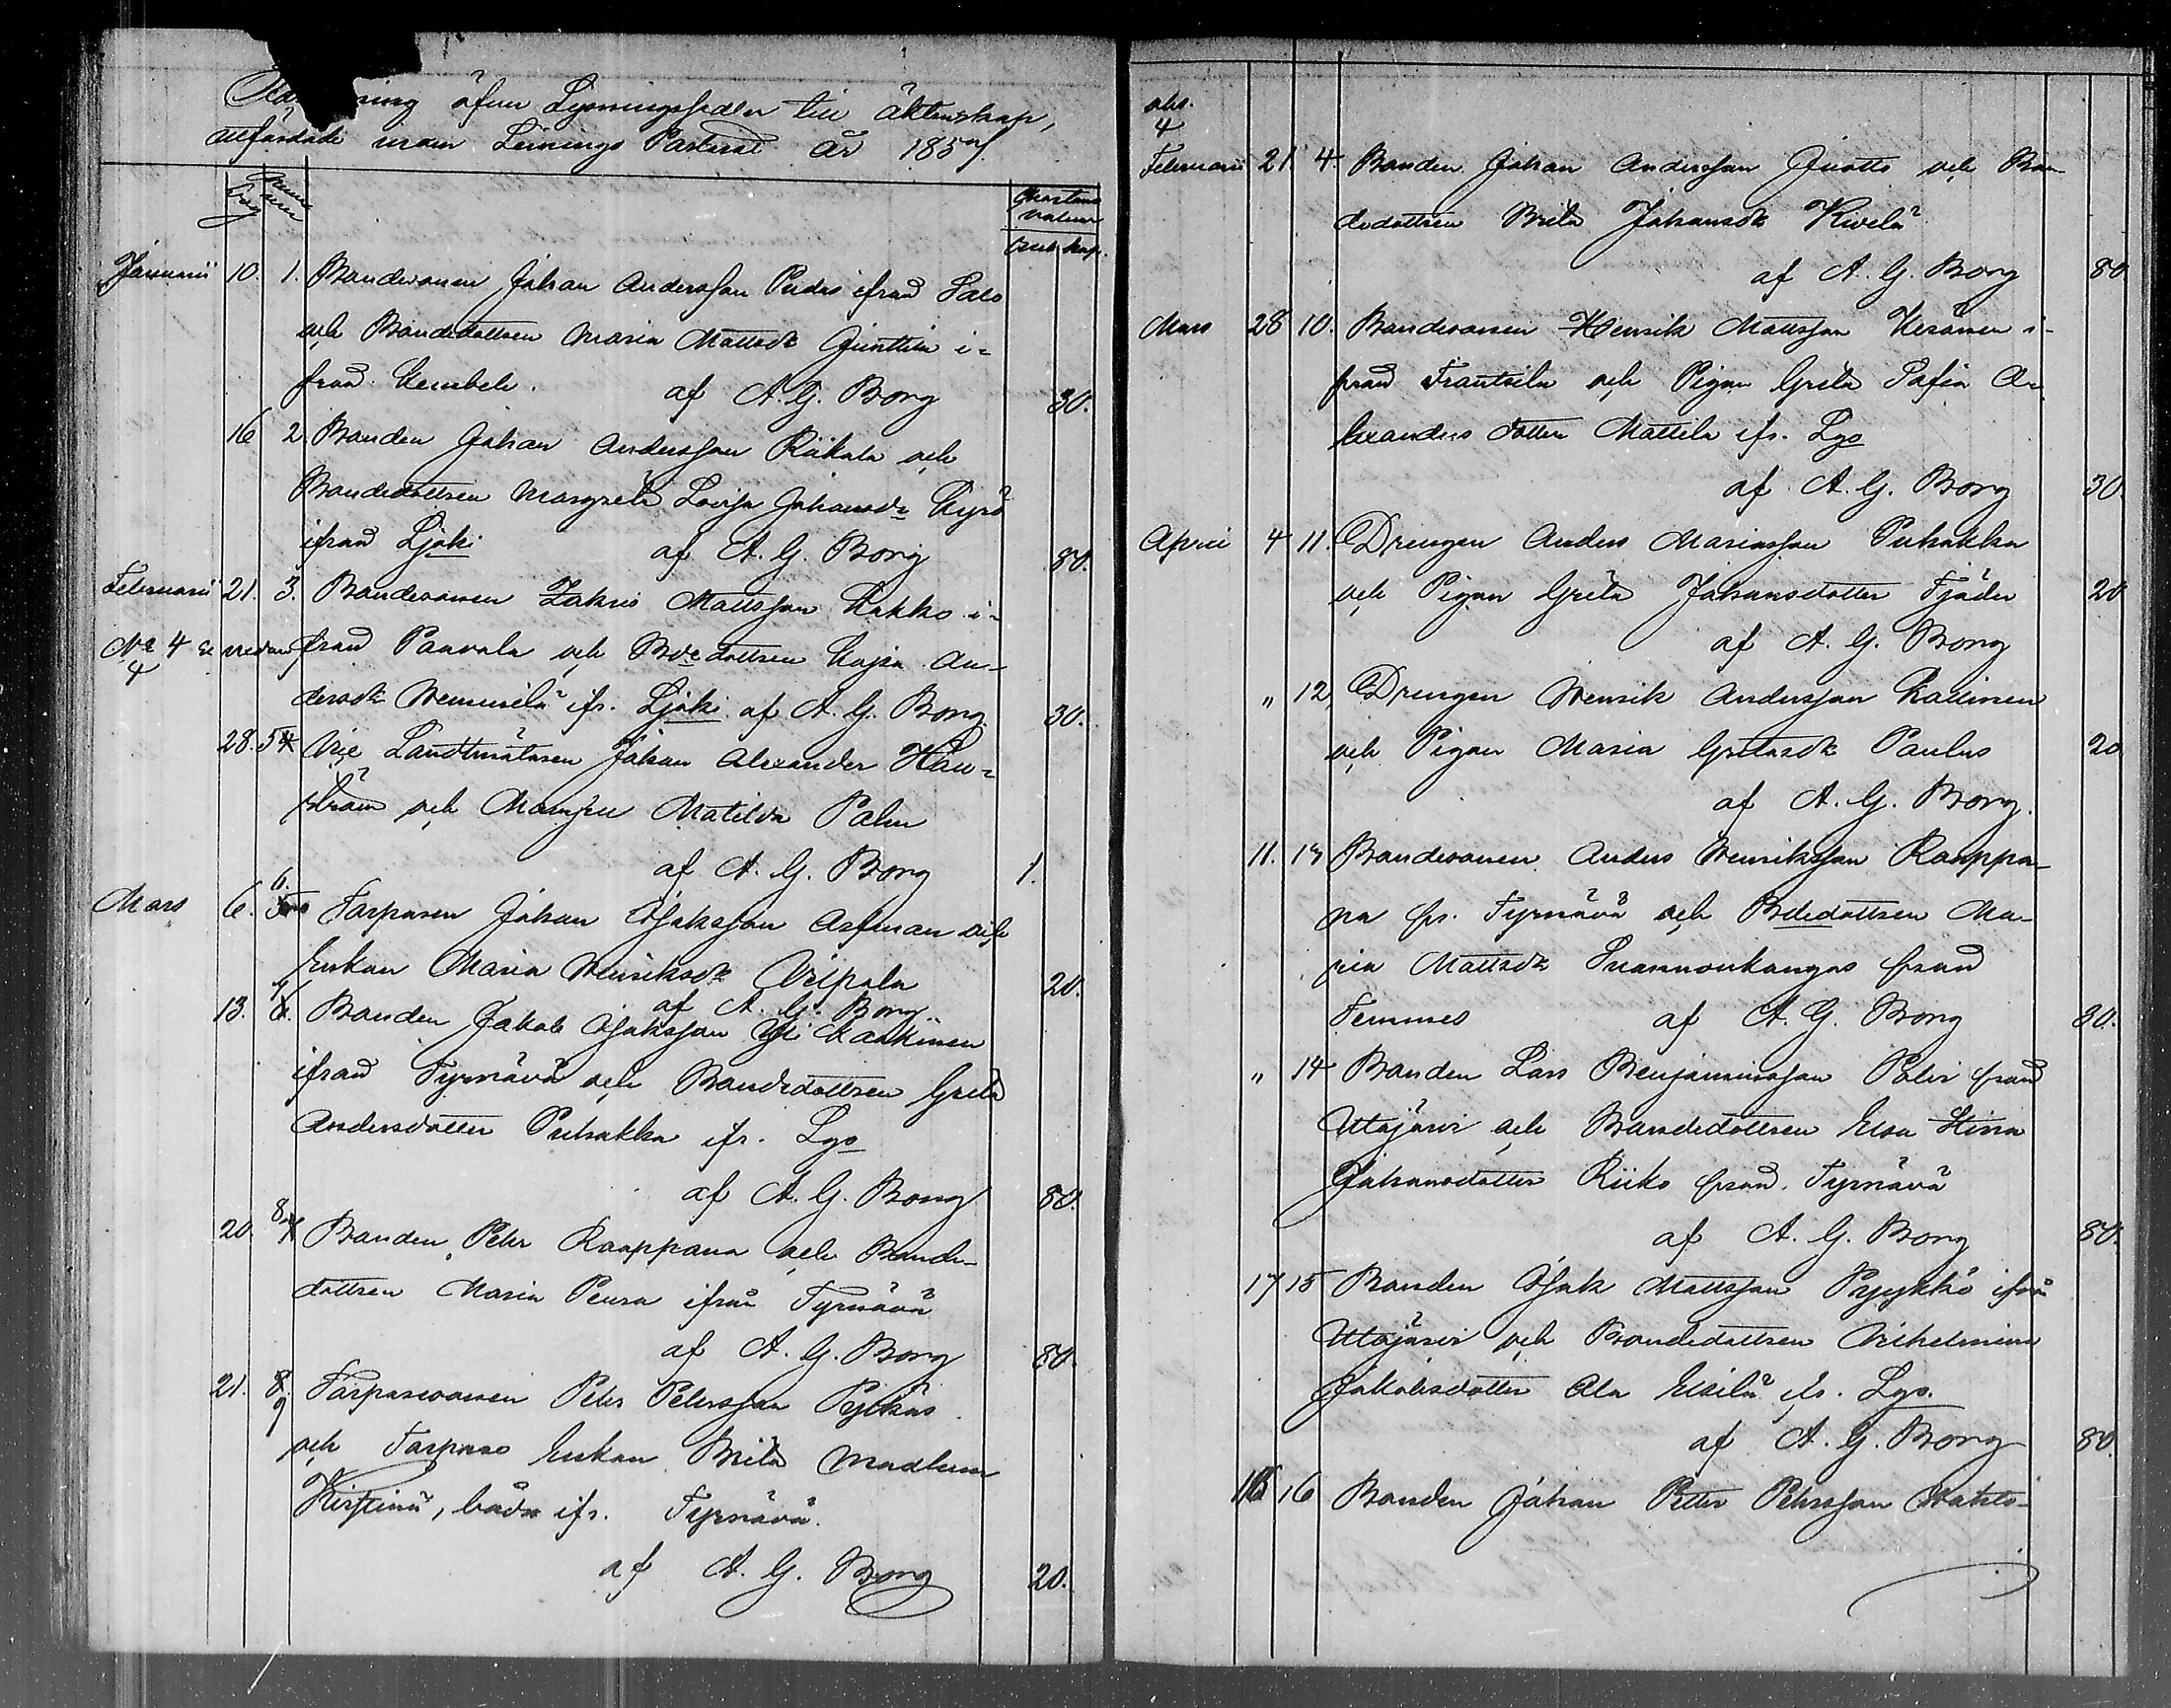 ning öfver Lysningssedlar till äktenskap,
utfärdade inom Limingo Pastorat år 1857.
Dag Nummer Charta
valeur
Rub. kop.
Januarii 10. 1. Bondesonen Johan Andersson Pudas ifrån Salo
och Bondedottren Maria Mattsdr Junttila i-
från Kembele. af A. G. Borg 30.
16 2 Bonden Johan Andersson Riikola och
Bondedottren Margreta Lovisa Johansdr Kyrö
ifrån Ljoki af A. G. Borg 80.
Februarii 21. 3. Bondesonen Zakris Mattsson Kakko i-
No 4 se nedan från Paavola och Bdedottren Kajsa An-
4
dersdr Wennilä ifr. Ljoki af A. G. Borg 30.
28. 5 4 Vice Landtmätaren Johan Alexander Hän-
ström och Mamsell Matilda Palm
af A. G. Borg 1.
Mars 6. 6. 5 Torparen Johan Isaksson Asiman och
Enkan Maria Henriksdr Vilpola 20.
af A. G. Borg
13. 7 6. Bonden Jakob Isaksson Yli Kaakinen
ifrån Tyrnävä och Bondedottren Greta
Andersdotter Puhakka ifr. Lgo
af A. G. Borg 80.
20. 8 7 Bonden Petter Raappana och Bonde-
dottren Maria Peura ifrån Tyrnävä
af A. G. Borg 80.
21. 8. Torparesonen Petter Pettersson Pylkäs
9
och Torpare Enkan Brita Madlena
Kirstinä, båda ifr. Tyrnävä.
af A. G. Borg 20.
obs.
4
Februarii 21. 4. Bonden Johan Andersson Juotto och Bon-
dedottren Brita Johansdr Kivelä
af A. G. Borg 80
Mars 28 10. Bondesonen Henrik Mattsson Keränen i-
från Frantsila och Pigan Greta Sofia A-
lexanders dotter Mattila ifr. Lgo
af A. G. Borg 30
April 4 11. Drengen Anders Mariasson Puhakka
och Pigan Greta Johansdotter Fjäder 20
af A. G. Borg
" 12 Drengen Henrik Andersson Kallinen
och Pigan Maria Gretasdr Paulus 20
af A. G. Borg.
11. 13 Bondesonen Anders Henriksson Raappa-
na fr. Tyrnävä och Bdedottren Ma-
ria Mattsdr Suannonkangas från
Temmes af A. G. Borg 30.
" 14 Bonden Lars Benjaminsson Palo från
Utajärvi och Bondedottren Elsa Stina
Johansdotter Riiko från Tyrnävä
af A. G. Borg 80.
17 15 Bonden Isak Mattsson Pyykkö ifrån
Utajärvi och Bondedottren Vilhelmina
Jakobsdotter Ala Eskilä ifr. Lgo.
af A. G. Borg 80
18 16 Bonden Johan Petter Pettersson